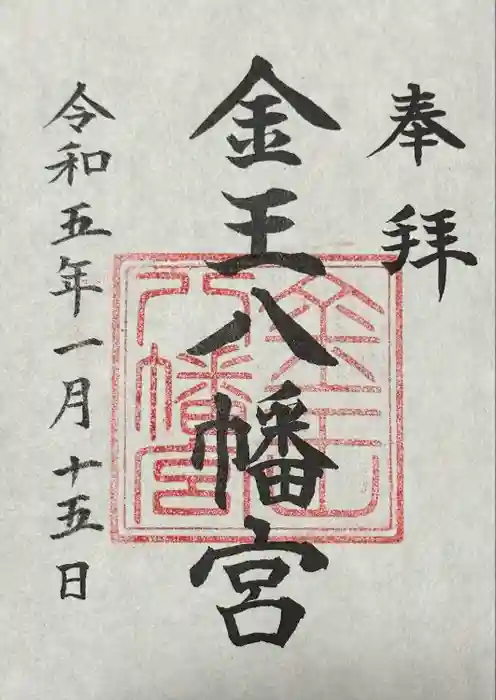 奉拝
金王八幡宮
令和五年一月十五日
金王
八幡宮